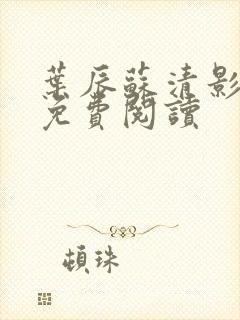 葉辰蘇清影
免費閱讀
頓珠